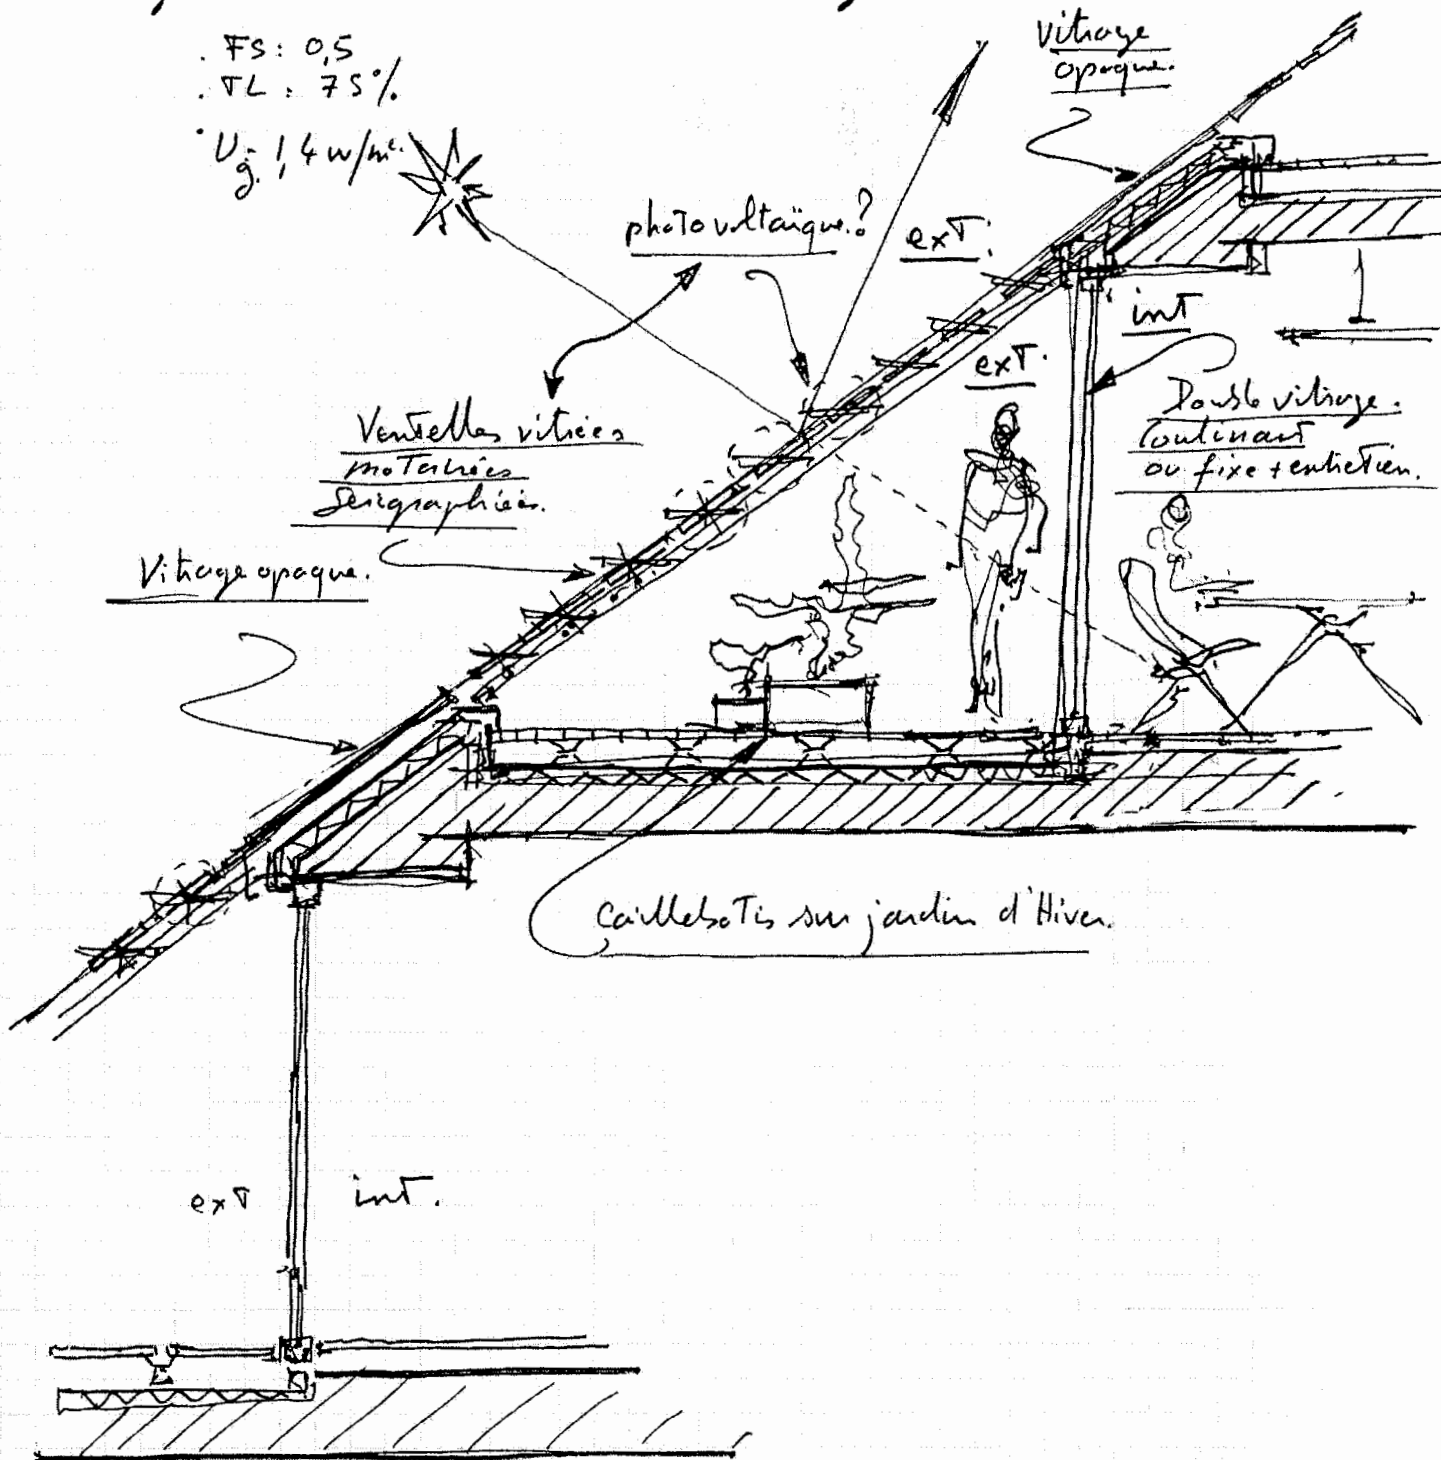 . FS : 0,5
. TL : 75%
. Ug. 1,4 w/m².
Vitrage
opaque.
photovoltaïque.?
ext.
int
ext.
Double vitrage.
Coulissant
ou fixe + entretien.
Ventelles vitrées
motorisées
Serigraphiées.
Vitrage opaque.
Caillebotis sur jardin d'Hiver.
ext
int.